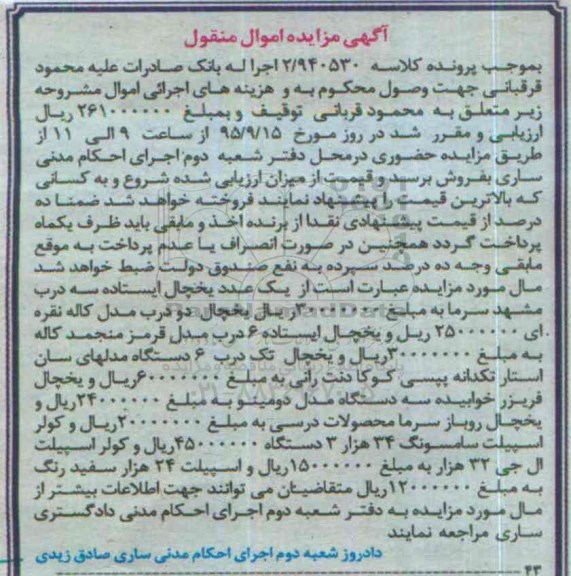 آگهی مزایده اموال منقول
بموجب پرونده کلاسه ۲/۹۴۰۵۳۰ اجرا له بانک صادرات علیه محمود
قرقبانی جهت وصول محکوم به و هزینه های اجرائی اموال مشروحه
زیر متعلق به محمود قربانی توقیف و بمبلغ ۲۶۱۰۰۰۰۰۰ ریال
ارزیابی و مقرر شد در روز مورخ ۹۵/۹/۱۵ از ساعت ۹ الی ۱۱ از
طریق مزایده حضوری درمحل دفتر شعبه دوم اجرای احکام مدنی
ساری بفروش برسد و قیمت از میزان ارزیابی شده شروع و به کسانی
که بالاترین قیمت را پیشنهاد نمایند فروخته خواهد شد ضمنا ده
درصد از قیمت پیشنهادی نقدا از برنده اخذ و مابقی باید ظرف یکماه
پرداخت گردد همچنین در صورت انصراف یا عدم پرداخت به موقع
مابقی وجه ده درصد سپرده به نفع صندوق دولت ضبط خواهد شد
مال مورد مزایده عبارت است از یک عدد یخچال ایستاده سه درب
مشهد سرما به مبلغ ریال یخچال دو درب مدل کاله نقره
ای ۲۵۰۰۰۰۰۰ ریل و یخچال ایستاده ۶ درب مدل قرمز منجمد کاله
به مبلغ ۳۰۰۰۰۰۰۰ریال و یخچال تک درب ۶ دستگاه مدلهای سان
استار تکدانه پپسی کوکا دنت رانی به مبلغ ۶۰۰۰۰۰۰۰ریال و یخچال
فریزر خوابیده سه دستگاه مدل دومینو به مبلغ ۲۴۰۰۰۰۰۰ریال و
یخچال روباز سرما محصولات درسی به مبلغ ۲۰۰۰۰۰۰۰ریال و کولر
اسپیلت سامسونگ ۳۴ هزار ۳ دستگاه ۴۵۰۰۰۰۰۰ریال و کولر اسپیلت
ال جی ۳۲ هزار به مبلغ ۱۵۰۰۰۰۰۰ریال و اسپیلت ۲۴ هزار سفید رنگ
به مبلغ ۱۲۰۰۰۰۰۰ریال متقاضیان می توانند جهت اطلاعات بیشتر از
مال مورد مزایده به دفتر شعبه دوم اجرای احکام مدنی دادگستری
ساری مراجعه نمایند
دادرورز شعبه دوم اجرای احکام مدنی ساری صادق زیدی
۴۳